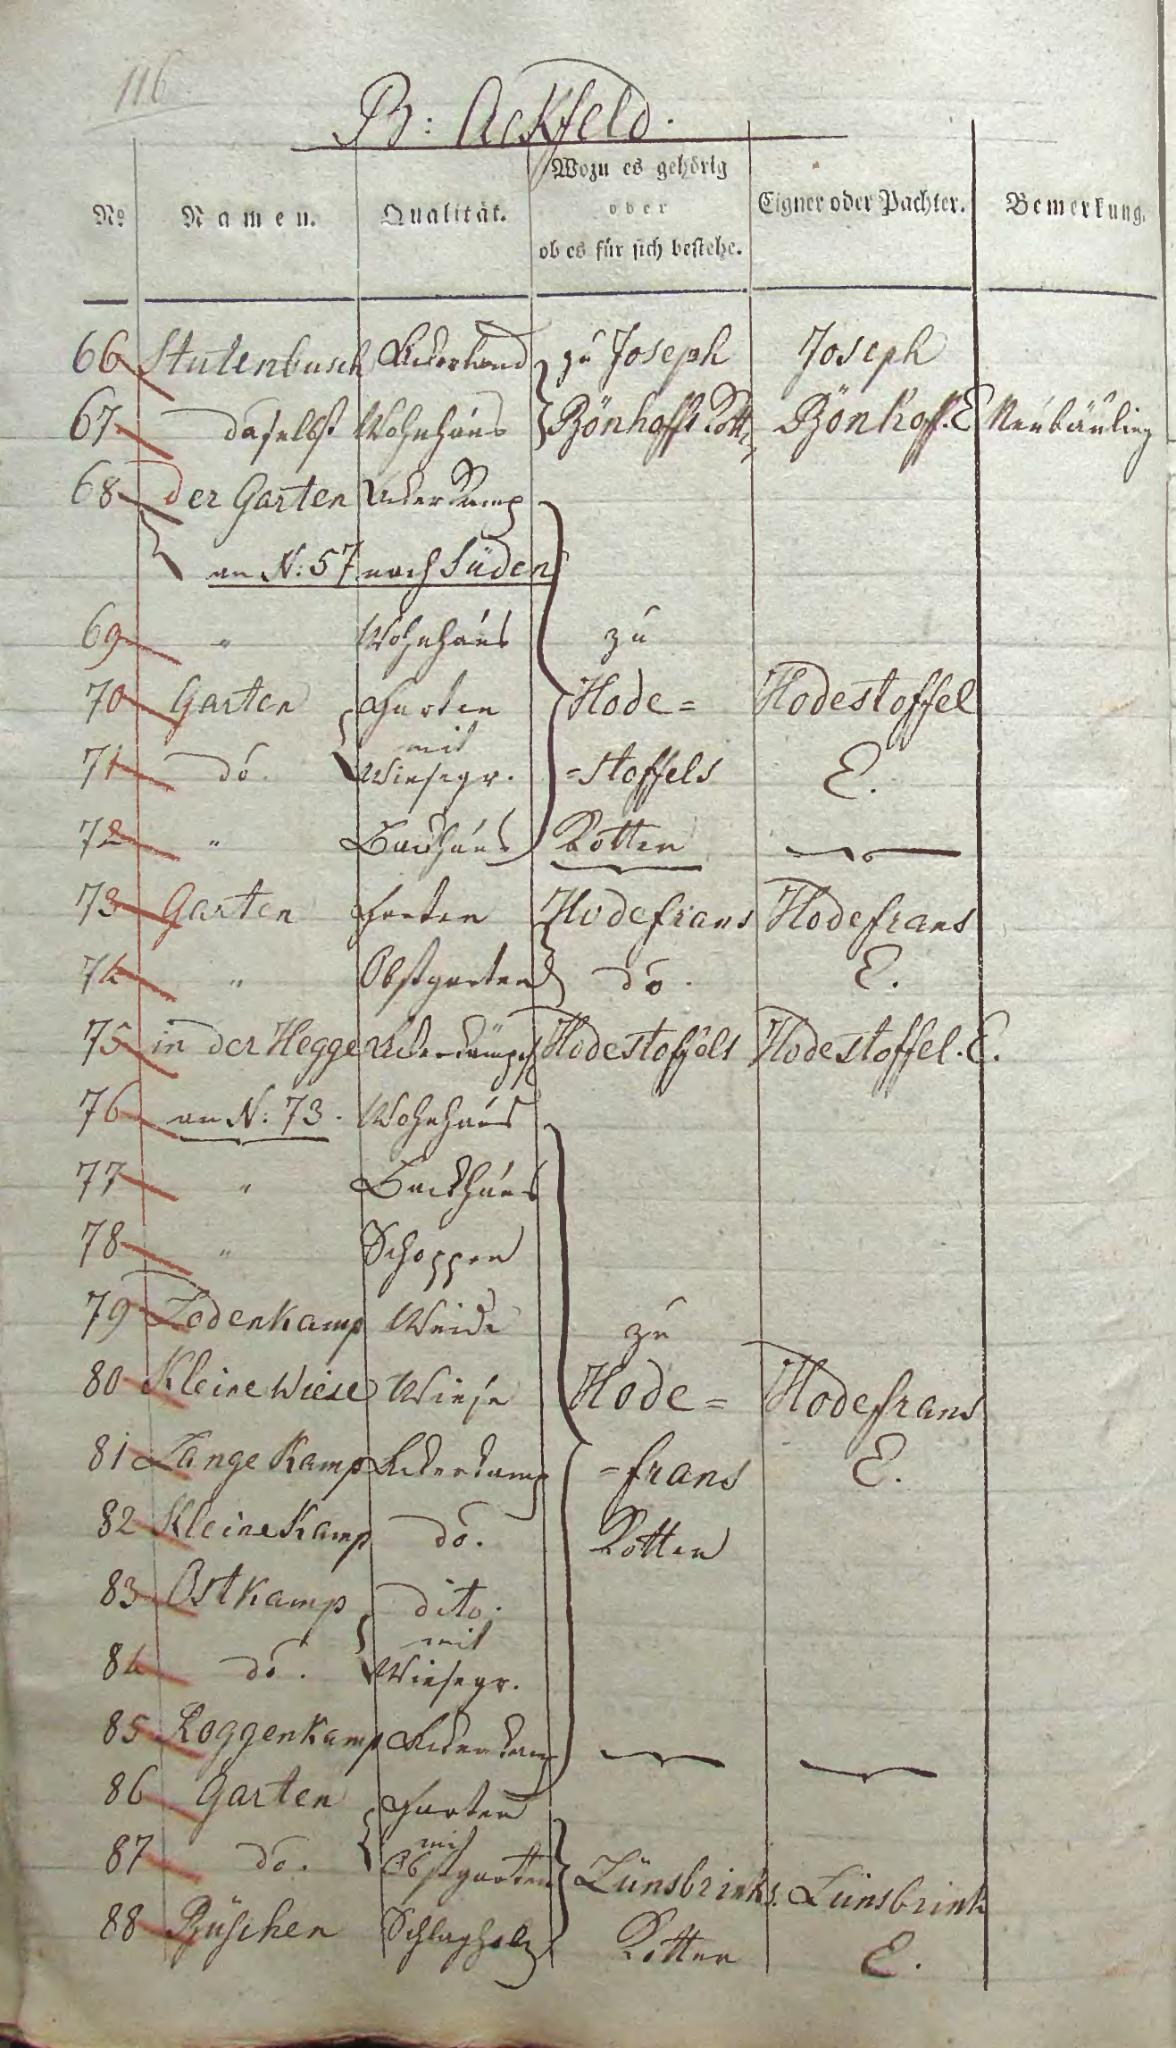 116
B: Ackfeld.
No. Namen. Qualität. Wozu es gehörig oder ob es für sich bestehe. Eigner oder Pachter. Bemerkung.
66 Stutenbusch Ackerland zu Joseph Joseph
67 daselbst Wohnhaus Bönhoffs Kott. Bönhoff. E Neubäuling
68 der Garten Ackerkamp
an N: 57 nach Süden
69 " Wohnhaus zu
70 Garten Garten Hode= Hodestoffel
mit
71 do. Wiesegr. =stoffels E.
72 " Backhaus Kotten
73 Garten Garten Hodefrans Hodefrans
74 " Obstgarten do. E.
75 in der Hegge Ackerkämpch Hodestoffels Hodestoffel. E.
76 an N: 73. Wohnhaus
77 " Backhaus
78 " Schoppen
79 Lodenkamp Weide zu
80 Kleine Wiese Wiese Hode= Hodefrans
81 Lange Kamp Ackerkamp =frans E.
82 Kleine Kamp do. Kotten
83 Ostkamp dito.
mit
84 do. Wiesegr.
85 Roggenkamp Ackerkamp
86 Garten Garten
mit
87 do. Obstgarten Lünsbrinks. Lünsbrink
88 Büschen Schlagholz Kotten E.